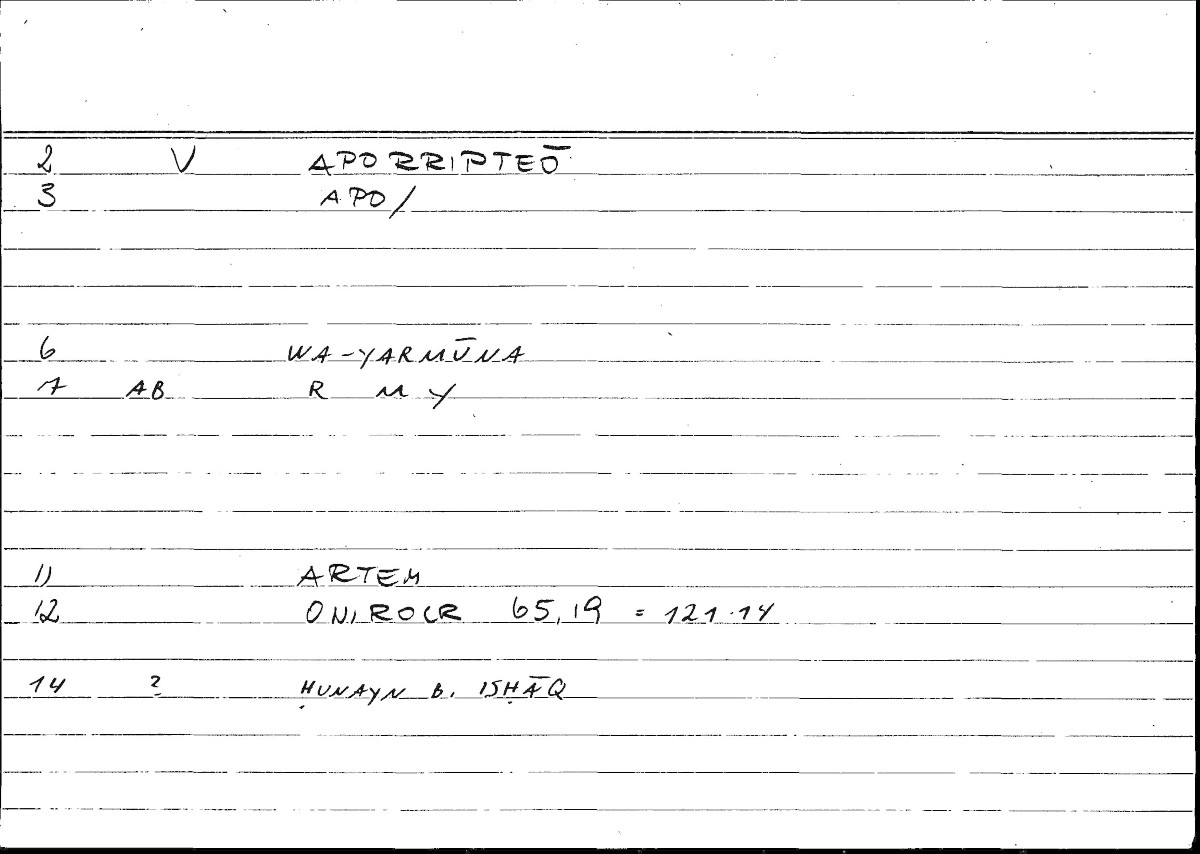 2 V APORRIPTEŌ
3 APO/
6 WA-YARMŪNA
7 AB R M Y
11 ARTEM
12 ONIROCR 65,19 = 121.14
14 ? ḤUNAYN B. ISḤĀQ